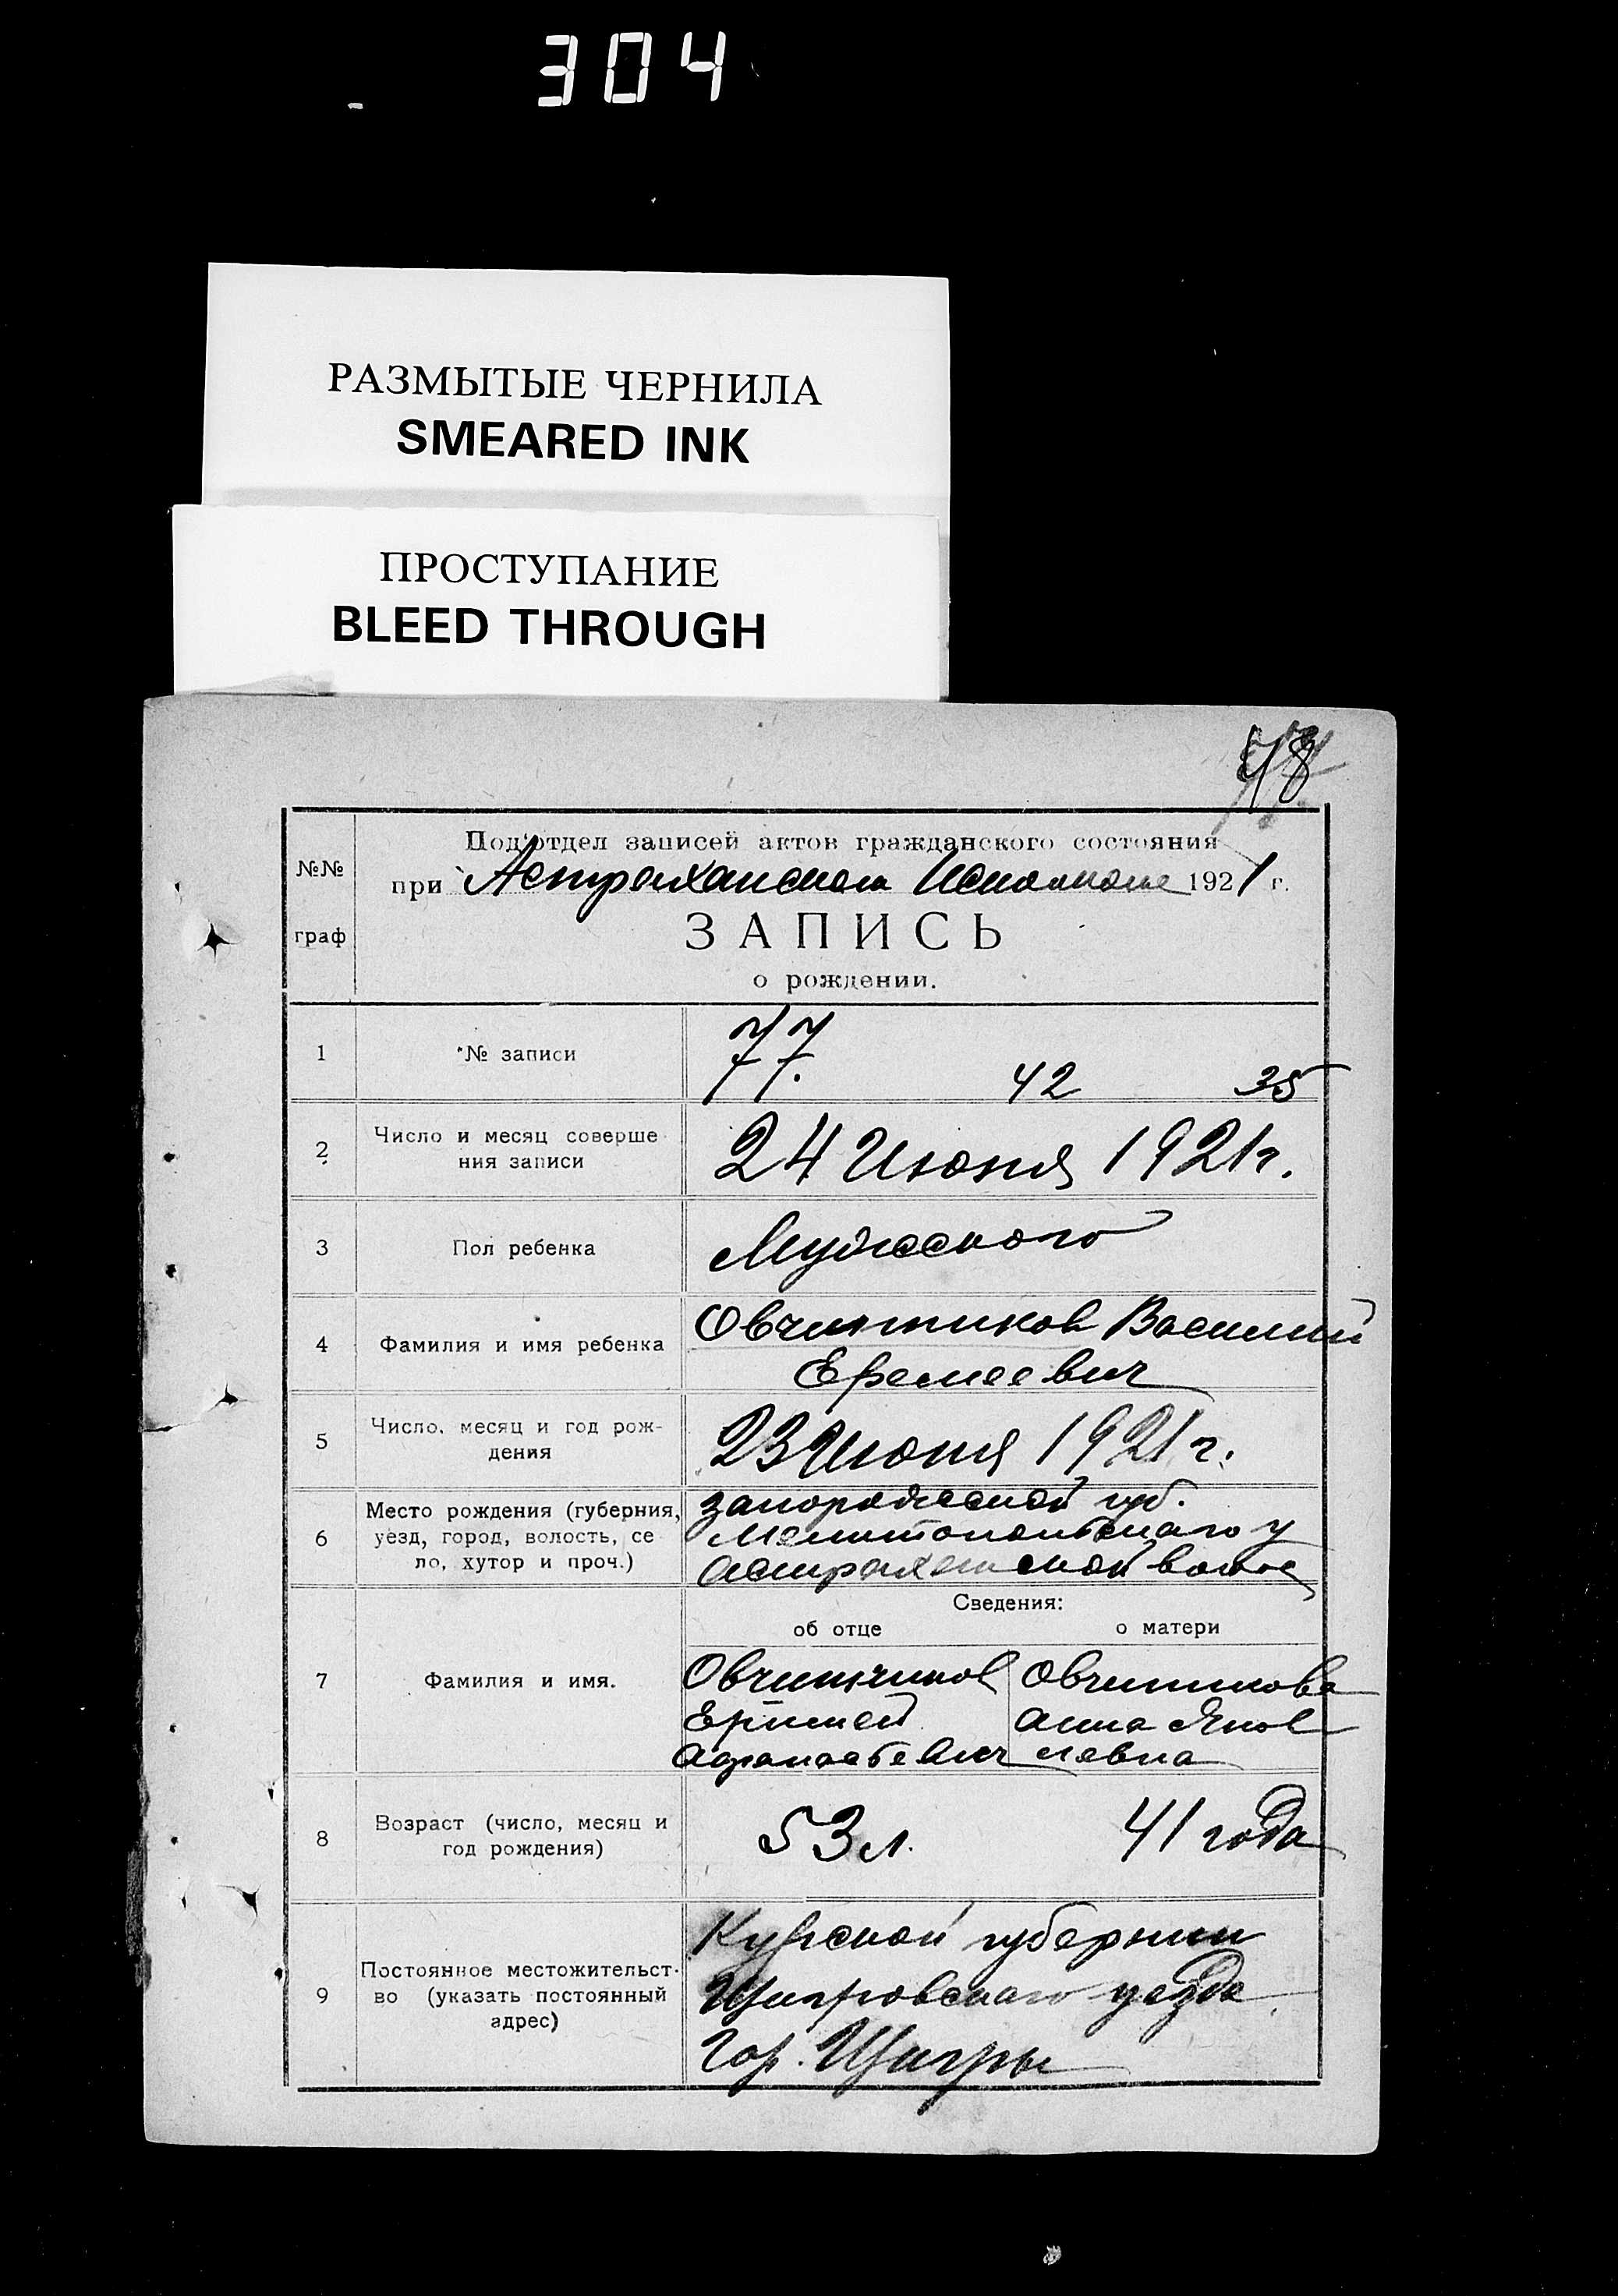 304
РАЗМЫТЫЕ ЧЕРНИЛА
SMEARED INK
ПРОСТУПАНИЕ
BLEED THROUGH
48
Подотдел записей актов гражданского состояния
№№
граф
при Астраханском Исполкоме 1921 г.
ЗАПИСЬ
о рождении.
1
№ записи
77.
42
35
2
Число и месяц соверше
ния записи
24 Июня 1921г.
3
Пол ребенка
Мужского
4
Фамилия и имя ребенка
Овчинников Василий
Ефемеевич
5
Число, месяц и год рож-
дения
23 Июня 1921 г.
6
Место рождения (губерния,
уезд, город, волость, се
ло, хутор и проч.)
запорожской губ.
Мелитопольскаго у
астраханской волос
Сведения:
об отце
о матери
7
Фамилия и имя.
Овчинников
Афанасьевич
Овчинникова
анна Яков
левна
8
Возраст (число, месяц и
год рождения)
53 л.
41 года
9
Постоянное местожительст-
во (указать постоянный
адрес)
Курской губернии
Щигровскаго уезда
Гор. Щигры